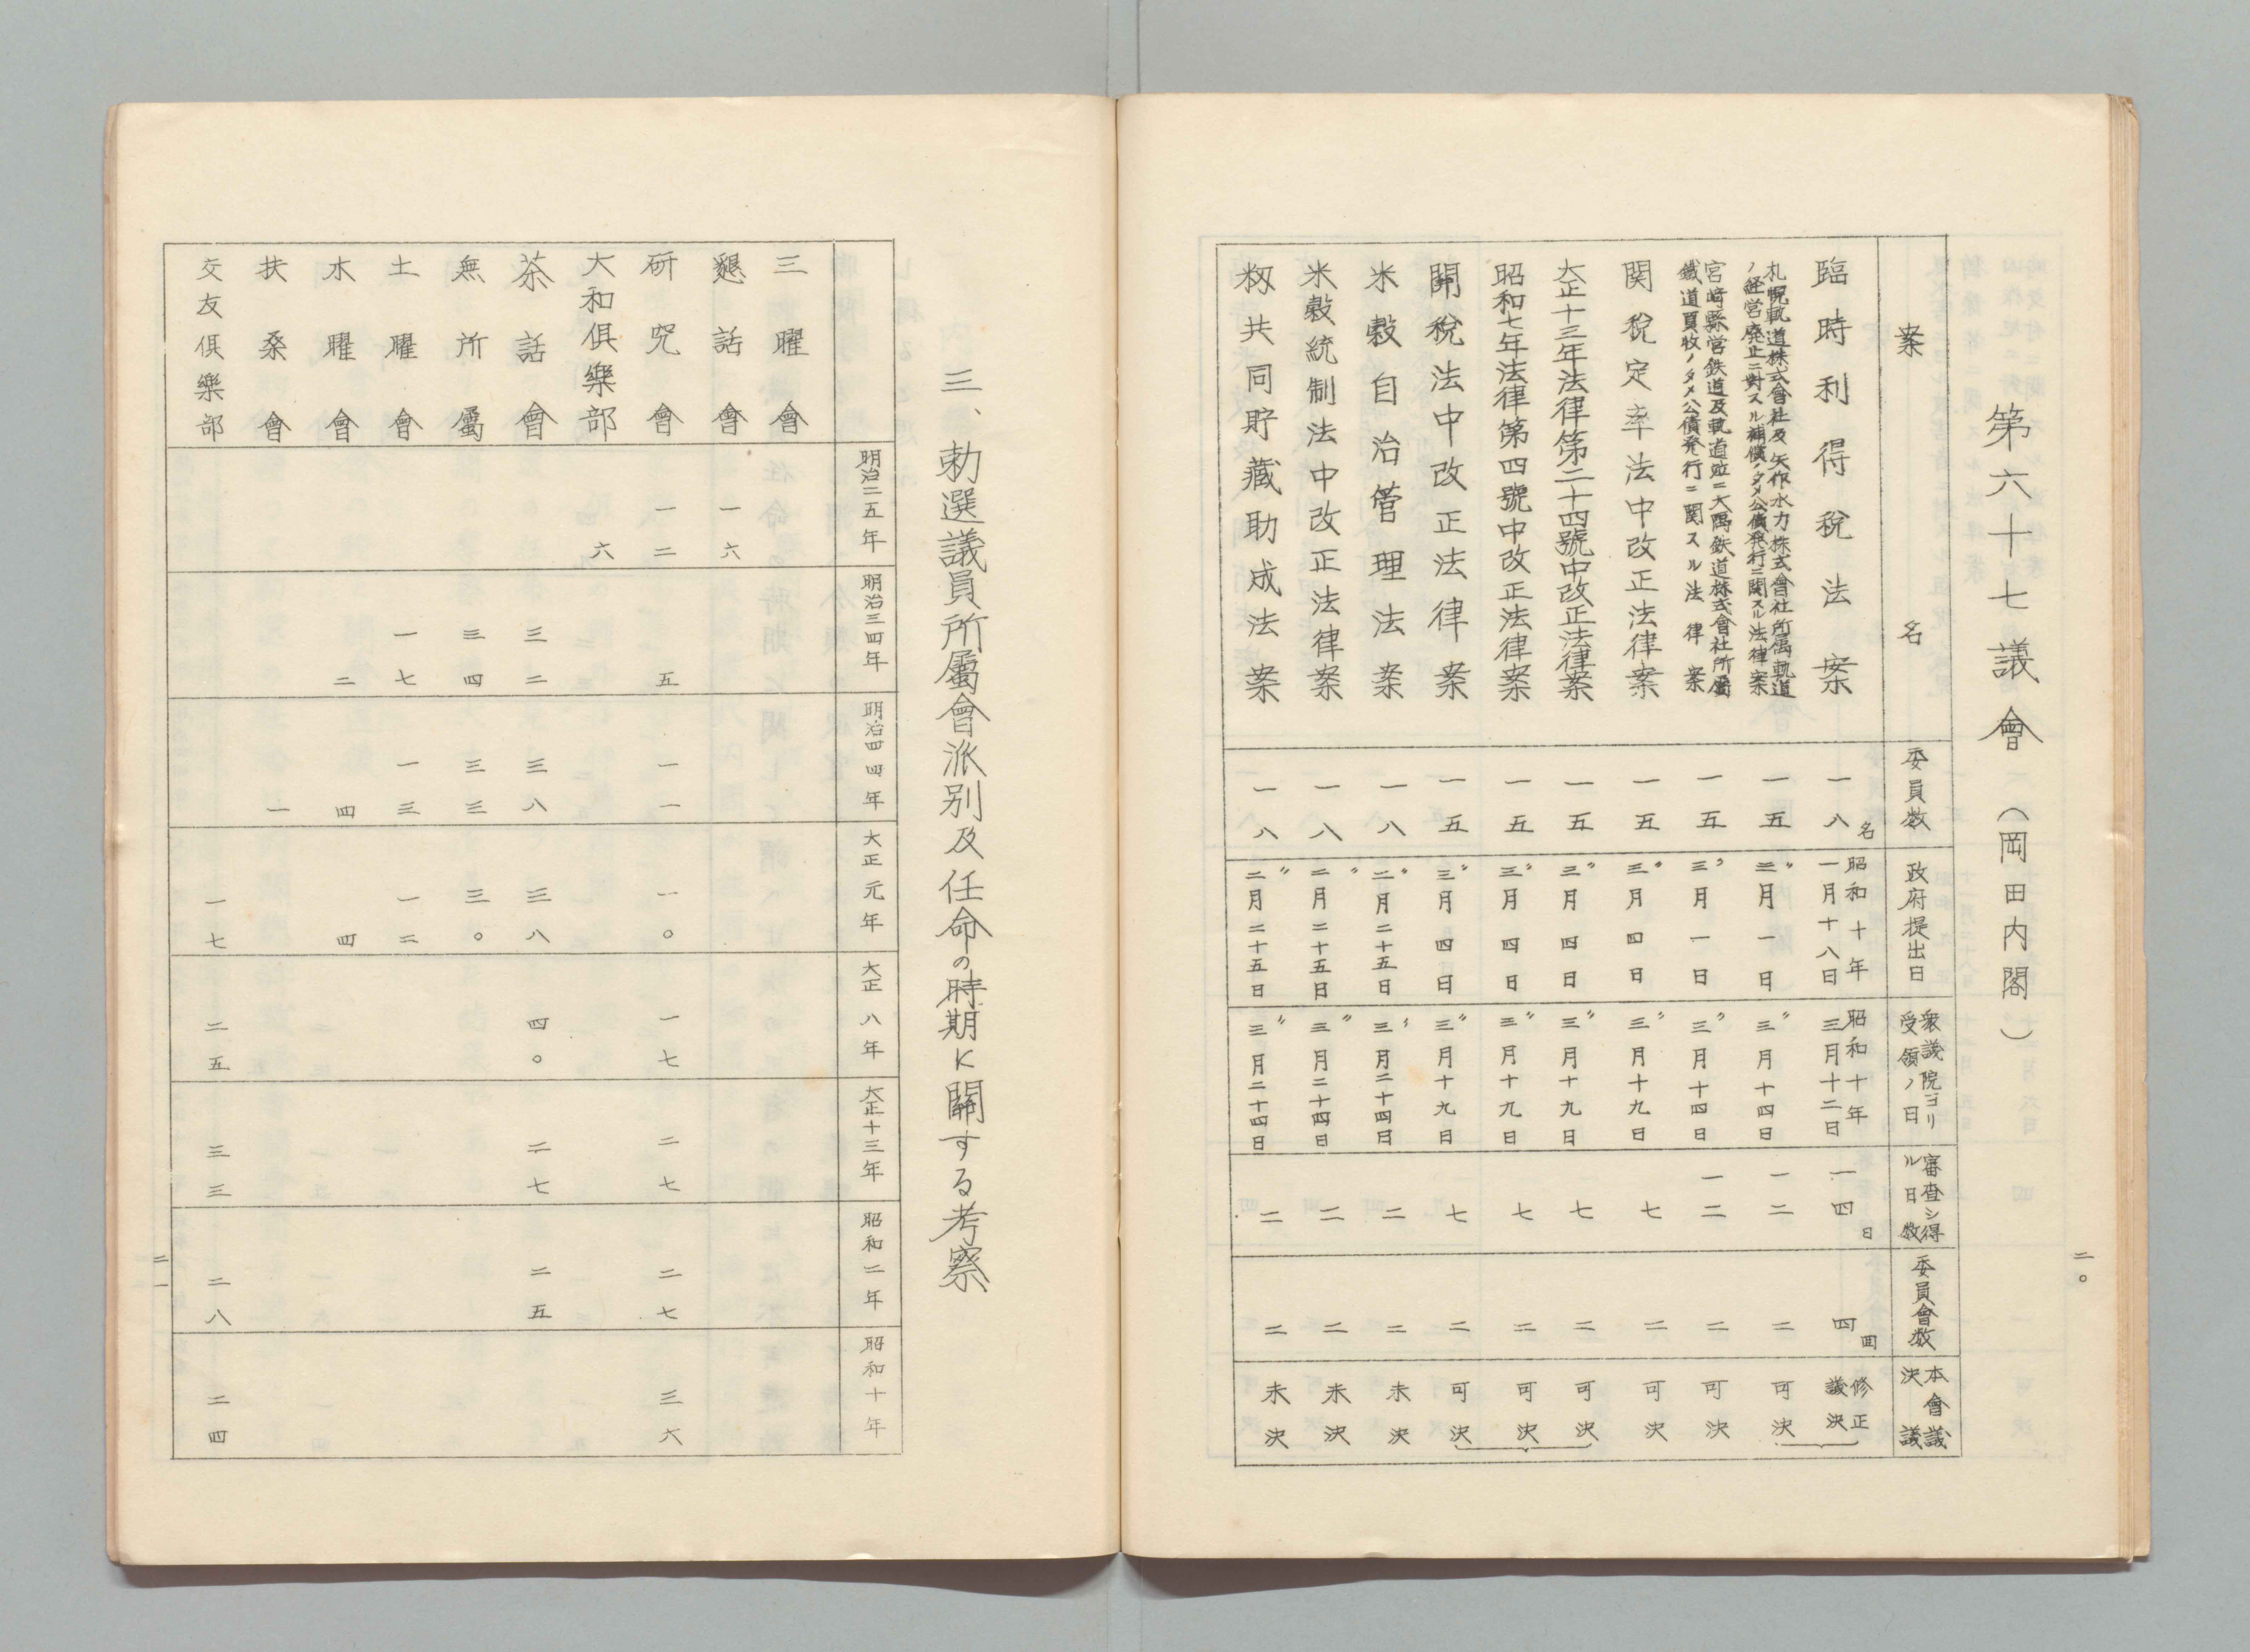 二〇
第六十七議會（岡田内閣）
案名
委員数
政府提出日
衆議院ヨリ受領ノ日
審査シ得ル日数
委員會数
本會議決議
臨時利得税法案
一八名
昭和十年一月十八日
昭和十年三月十二日
一四日
四回
修正議決
札幌軌道株式會社及矢作水力株式會社所属軌道
ノ経営廃止ニ對スル補償ノタメ公債発行ニ関スル法律案
一五
〃三月一日
〃三月十四日
一二
二
可決
宮崎縣営鉄道及軌道竝ニ大隅鉄道株式會社所屬
鐵道買收ノタメ公債発行ニ関スル法律案
一五
〃三月一日
〃三月十四日
一二
二
可決
関税定率法中改正法律案
一五
〃三月四日
〃三月十九日
七
二
可決
大正十三年法律第二十四號中改正法律案
一五
〃三月四日
〃三月十九日
七
二
可決
昭和七年法律第四號中改正法律案
一五
〃三月四日
〃三月十九日
七
二
可決
関税法中改正法律案
一五
〃三月四日
〃三月十九日
七
二
可決
米穀自治管理法案
一八
〃二月二十五日
〃三月二十四日
二
二
未決
米穀統制法中改正法律案
一八
〃二月二十五日
〃三月二十四日
二
二
未決
籾共同貯藏助成法案
一八
〃二月二十五日
〃三月二十四日
二
二
未決
三、勅選議員所屬會派別及任命の時期に關する考察
明治二五年
明治三四年
明治四四年
大正元年
大正八年
大正十三年
昭和二年
昭和十年
三曜會
懇話會
一六
研究會
一二
五
一一
一〇
一七
二七
二七
三六
大和倶樂部
六
茶話會
三二
三八
三八
四〇
二七
二五
無所屬
三四
三三
三〇
土曜會
一七
一三
一二
木曜會
二
四
四
扶桑會
一
交友倶樂部
一七
二五
三三
二八
二四
二一